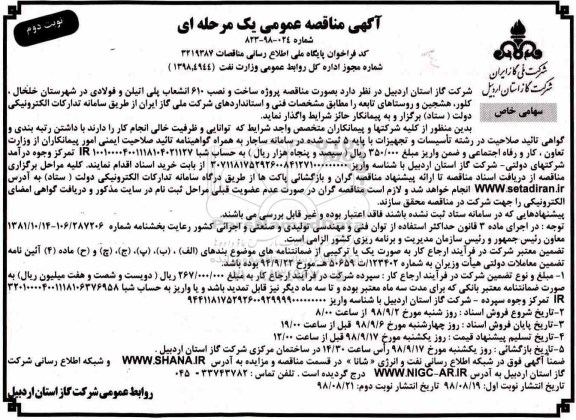 نوبت دوم
آگهی مناقصه عمومی یک مرحله ای
شماره ۰۲۴-۹۸-۸۲۳
کد فراخوان پایگاه ملی اطلاع رسانی مناقصات ۳۲۱۹۳۸۷
شماره مجوز اداره کل روابط عمومی وزارت نفت (۱۳۹۸,۴۹۴۴)
شرکت ملی گاز ایران
شرکت گاز استان اردبیل
سهامی خاص
شرکت گاز استان اردبیل در نظر دارد بصورت مناقصه پروژه ساخت و نصب ۶۱۰ انشعاب پلی اتیلن و فولادی در شهرستان خلخال ،
کلور، هشجین و روستاهای تابعه را مطابق مشخصات فنی و استانداردهای شرکت ملی گاز ایران از طریق سامانه تدارکات الکترونیکی
دولت (ستاد) برگزار و به پیمانکار حائز شرایط واگذار نماید.
بدین منظور از کلیه شرکتها و پیمانکاران متخصص واجد شرایط که توانایی و ظرفیت خالی انجام کار را دارند با داشتن رتبه بندی و
گواهی تائید صلاحیت در رشته تأسیسات و تجهیزات با پایه ۵ ثبت شده در سامانه ساجار به همراه گواهینامه تائید صلاحیت ایمنی امور پیمانکاران از وزارت
تعاون ، کار و رفاه اجتماعی و ضمن واریز مبلغ ۳۵۰/۰۰۰ ریال (سیصد و پنجاه هزار ریال) به حساب شبا
IR تمرکز وجوه درآمد
شرکتهای دولتی- شرکت گاز استان اردبیل با شناسه واریز
از بابت خرید اسناد اقدام نمایند. کلیه مراحل برگزاری
مناقصه از دریافت اسناد مناقصه تا ارائه پیشنهاد مناقصه گران و بازگشائی پاکت ها از طریق درگاه سامانه تدارکات الکترونیکی دولت (ستاد) به آدرس
WWW.setadiran.ir انجام خواهد شد و لازم است مناقصه گران در صورت عدم عضویت قبلی مراحل ثبت نام در سایت مذکور و دریافت گواهی امضای
الکترونیکی را جهت شرکت در مناقصه محقق سازند.
پیشنهادهایی که در سامانه ستاد ثبت نشده باشند فاقد اعتبار بوده و غیر قابل بررسی می باشند.
توجه : در اجرای ماده ۳ قانون حداکثر استفاده از توان فنی و مهندسی تولیدی و صنعتی و اجرائی کشور رعایت بخشنامه شماره ۱۰۶/۲۸۷۲۰۶-۱۳۸۱/۱۰/۱۴
معاون رئیس جمهور و رئیس سازمان مدیریت و برنامه ریزی کشور الزامی است.
تضمین معتبر شرکت در فرآیند ارجاع کار به صورت یک یا ترکیبی از ضمانتنامه های موضوع بندهای (الف) ، (ب)، (پ)، (ج)، (چ) و (ح) ماده (۴) آئین نامه
تضمین معاملات دولتی هیأت وزیران به شماره ۱۲۳۴۰۲/ت ۵۰۶۵۹ هـ مورخ ۹۴/۹/۲۲ باشد.
۱- مبلغ و نوع تضمین شرکت در فرآیند ارجاع کار : سپرده شرکت در فرآیند ارجاع کار به مبلغ ۲۶۷/۰۰۰/۰۰۰ ریال (دویست و شصت و هفت میلیون ریال) به
صورت ضمانتنامه معتبر بانکی که برای مدت سه ماه معتبر بوده و تا سه ماه دیگر نیز قابل تمدید باشد و یا واریز به حساب شبا
IR تمرکز وجوه سپرده – شرکت گاز استان اردبیل با شناسه واریز
۲-تاریخ شروع فروش اسناد : روز شنبه مورخ ۹۸/۹/۲ از ساعت ۸/۰۰
۳-تاریخ پایان فروش اسناد : روز چهارشنبه مورخ ۹۸/۹/۶ قبل از ساعت ۱۹/۰۰
۴-تاریخ تسلیم پیشنهاد قیمت : روز یکشنبه مورخ ۹۸/۹/۱۷ قبل از ساعت ۱۲/۰۰
۵-تاریخ بازگشائی : روز یکشنبه مورخ ۹۸/۹/۱۷ رأس ساعت ۱۴/۳۰ در ساختمان مرکزی شرکت گاز استان اردبیل .
ضمناً آگهی فوق در شبکه اطلاع رسانی نفت و انرژی «شانا» در قسمت مناقصه و مزایده به آدرس WWW.SHANA.IR و شبکه اطلاع رسانی شرکت
گاز استان اردبیل به آدرس WWW.NIGC-AR.IR درج گردیده است . تلفن تماس : ۳۳۷۴۳۷۸۲ -۰۴۵
تاریخ انتشار نوبت اول: ۹۸/۰۸/۱۹ تاریخ انتشار نوبت دوم: ۹۸/۰۸/۲۱
روابط عمومی شرکت گاز استان اردبیل